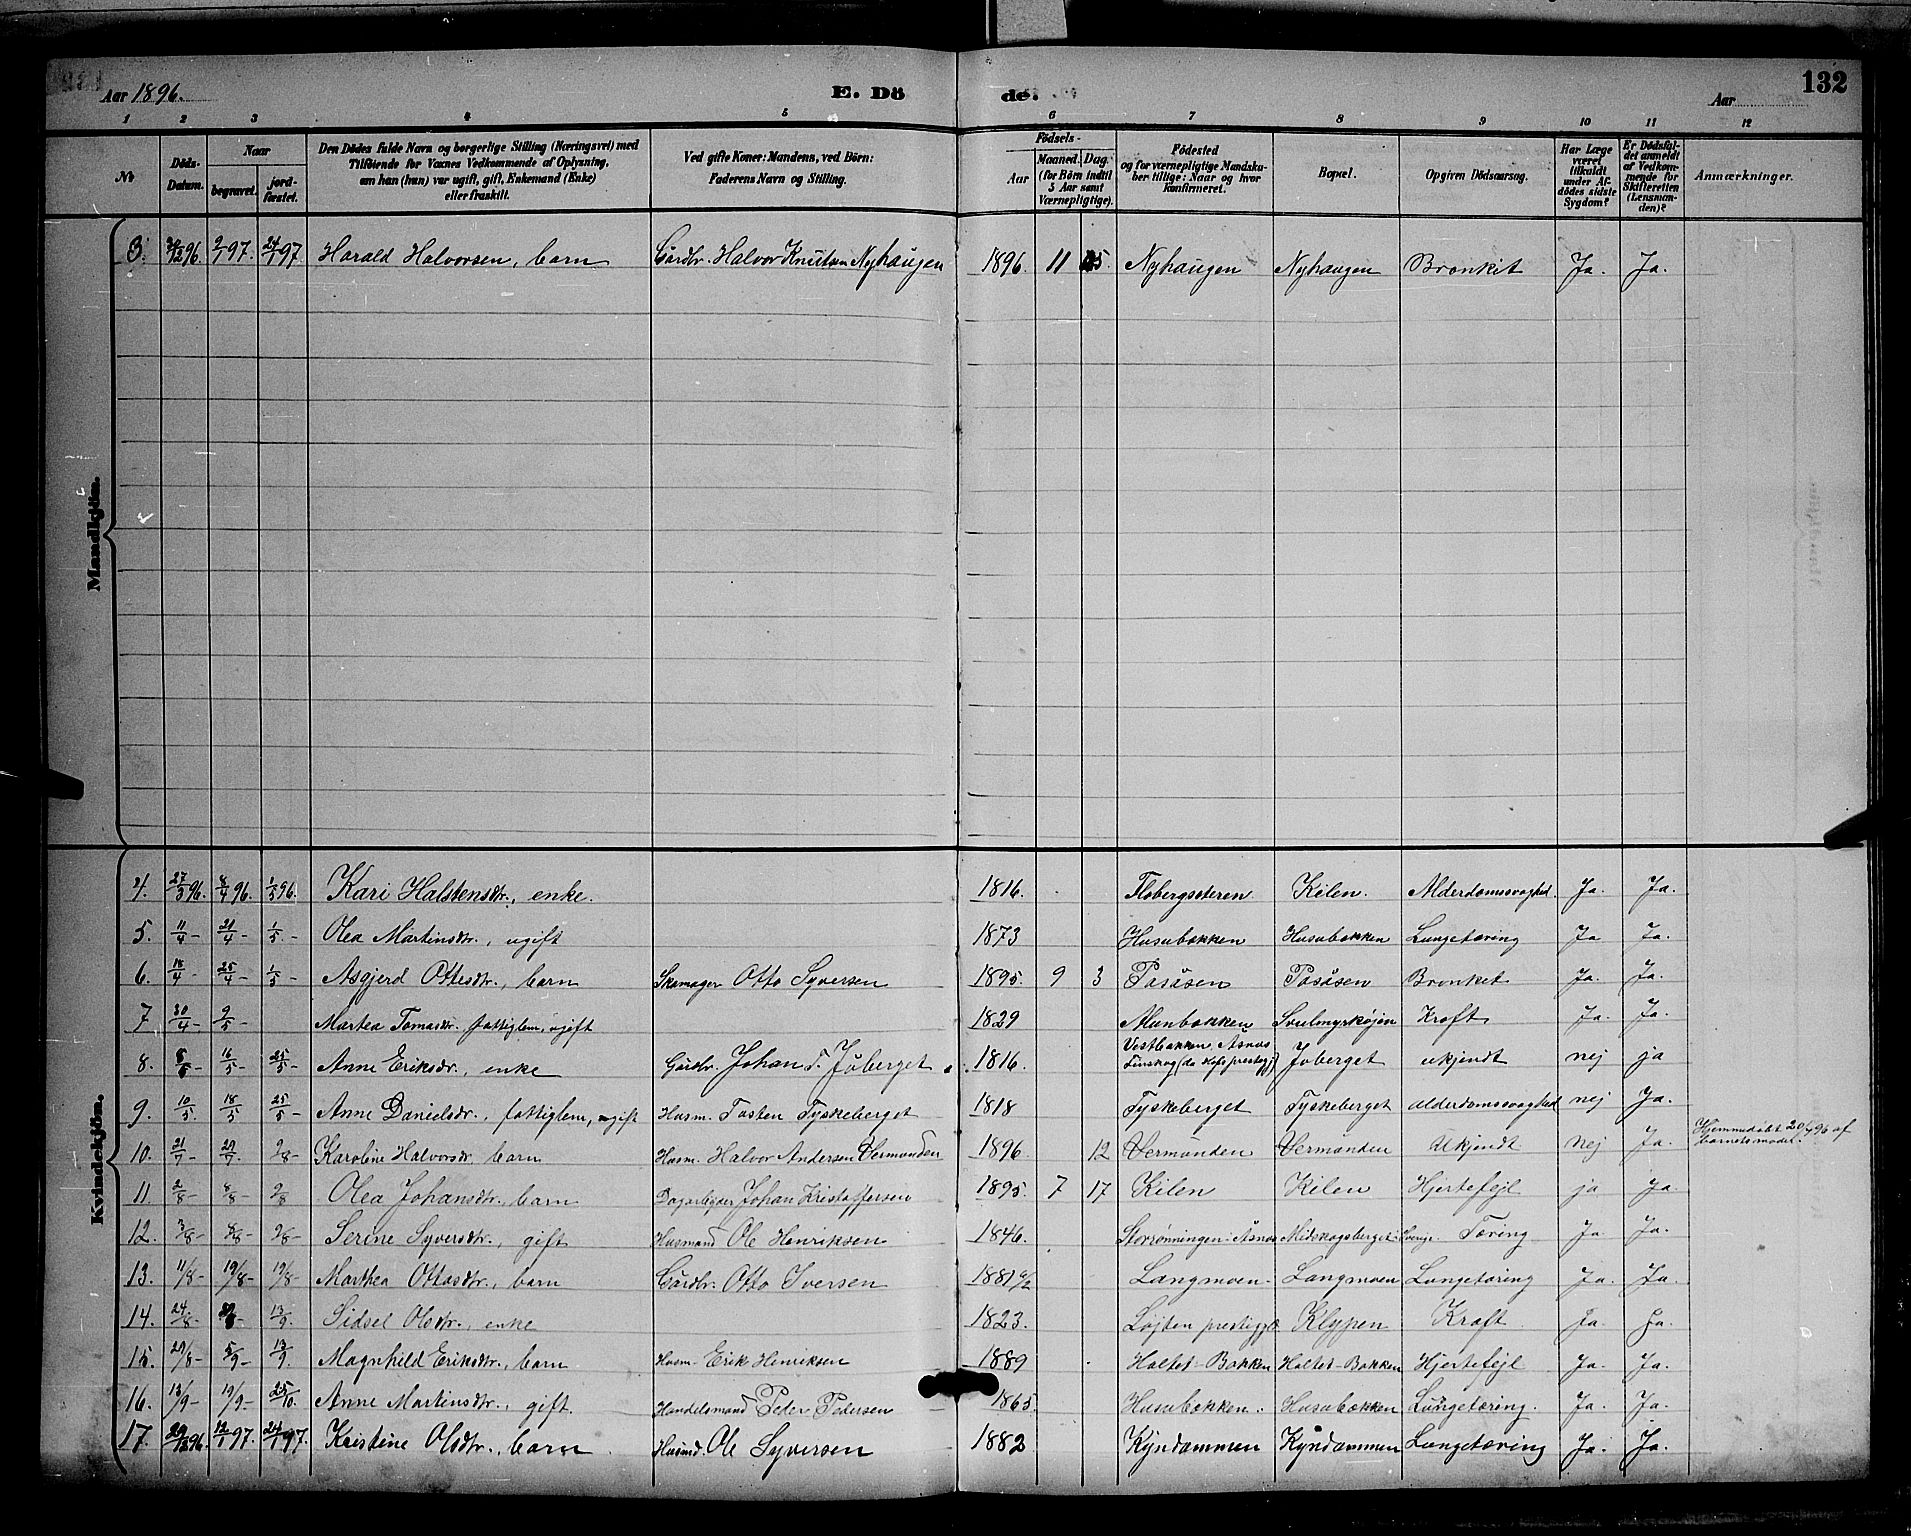 Aar 1896. E. Dö de. Aar 132
1 2 3 4 5 6 7 8 9 10 11 12
No Döds-Datum. Naar begravet. jordfæstet. Den Dödes fulde Navn og borgerlige Stilling (Næringsvei) med Tilföiende for Voxnes Vedkommende af Oplysning, om han (hun) var ugift, gift, Enkemand (Enke) eller fraskilt. Ved gifte Koner: Mandens, ved Börn: Faderens Navn og Stilling. Födsels- Aar Maaned. Dag. (for Börn indtil 5 Aar samt Værnepligtige). Födested og for værnepligtige Mandskaber tillige: Naar og hvor konfirmeret. Bopæl. Opgiven Dödsaarsag. Har Læge været tilkaldt under Afdödes sidste Sygdom? Er Dödsfaldet anmeldt af Vedkommende for Skifteretten (Lensmanden)? Anmærkninger.
Mandkjön.
8. 96. 2/1 97. 24/1 97 Harald Halvorsen, barn Gårdbr. Halvor Knutsen Nyhaugen 1896 11 25. Nyhaugen Nyhaugen Bronkit Ja. Ja.
Kvindekjön.
4. 27/3 96. 8/4 96. 1/5 96. Kari Halstensdtr., enke. 1816. Flobergseteren Kilen. Alderdomssvaghed Ja. Ja.
5. 11/4 – 21/4 – 1/5 – Olea Martinsdtr., ugift 1873 Husubakken Husubakken Lungetæring Ja Ja.
6. 18/4 – 25/4 – 1/5 – Asgjerd Ottesdtr., barn Skomager Otto Syversen 1895. 9 3 Pasåsen Pasåsen Bronket Ja. Ja.
7 30/4 – 9/5 – Martea Tomasdtr. fattiglem, ugift 1829 Alunbakken Svulmyrkojen Kræft Ja. Ja
8. – 16/5 – 25/5 – Anne Eriksdtr., enke Gårdbr. Johan T. Joberget 1816. Vestbakken, Åsnes Finskog Joberget ukjendt nej ja
9. 10/5. 18/5 25/5 – Anne Danielsdtr., fattiglem, ugift Husm. Tosten Tyskeberget 1818 Tyskeberget Tyskeberget alderdomssvaghed nej Ja.
10. 21/7 – 29/7. 2/8 – Karoline Halvorsdr. barn Husm. Halvor Andersen Vermunden 1896. 12 Vermunden Vermunden Ukjendt nej Ja. Hjemmedøbt 20/7 96 af barnets moder.
11. 2/8 – 8/8 – 2/8 Olea Johansdtr., barn Dagarbejder Johan Kristoffersen 1895. 7 17 Kilen Kilen Hjertefejl ja Ja.
12. 3/8 – 8/8 – 2/8 – Serine Syversdtr., gift Husmand Ole Henriksen 1846. Storrønningen: Åsnes Midskogsberget: Sverige. Tæring Ja Ja.
13. 11/8 – 19/8 – 19/8 – Marthea Ottosdtr., barn Gårdbr. Otto Iversen 1881 6/2 Langmoen. Langmoen Lungetæring Ja. Ja.
14. 24/8 – 13/9. Sidsel Olsdtr., enke 1823. Løjten prestegj. Klypen Kræft. Ja. Ja.
15. 29/8 – 5/9 – 13/9. Magnhild Eriksdtr., barn Husm. Erik Henriksen 1889 Holtet-Bakken Holtet-Bakken Hjertefejl Ja. Ja.
16. 13/9 – 19/9 – 25/10. Anne Martinsdtr., gift. Handelsmand Peder Pedersen 1865. Husubakken. Husubakken Lungetæring. Ja. Ja.
17. 29/12 96. 12/1 97. 24/1 97. Kristine Olsdtr., barn Husmd. Ole Syversen 1882 Kyndammen Kyndammen Lungetæring Ja. Ja.